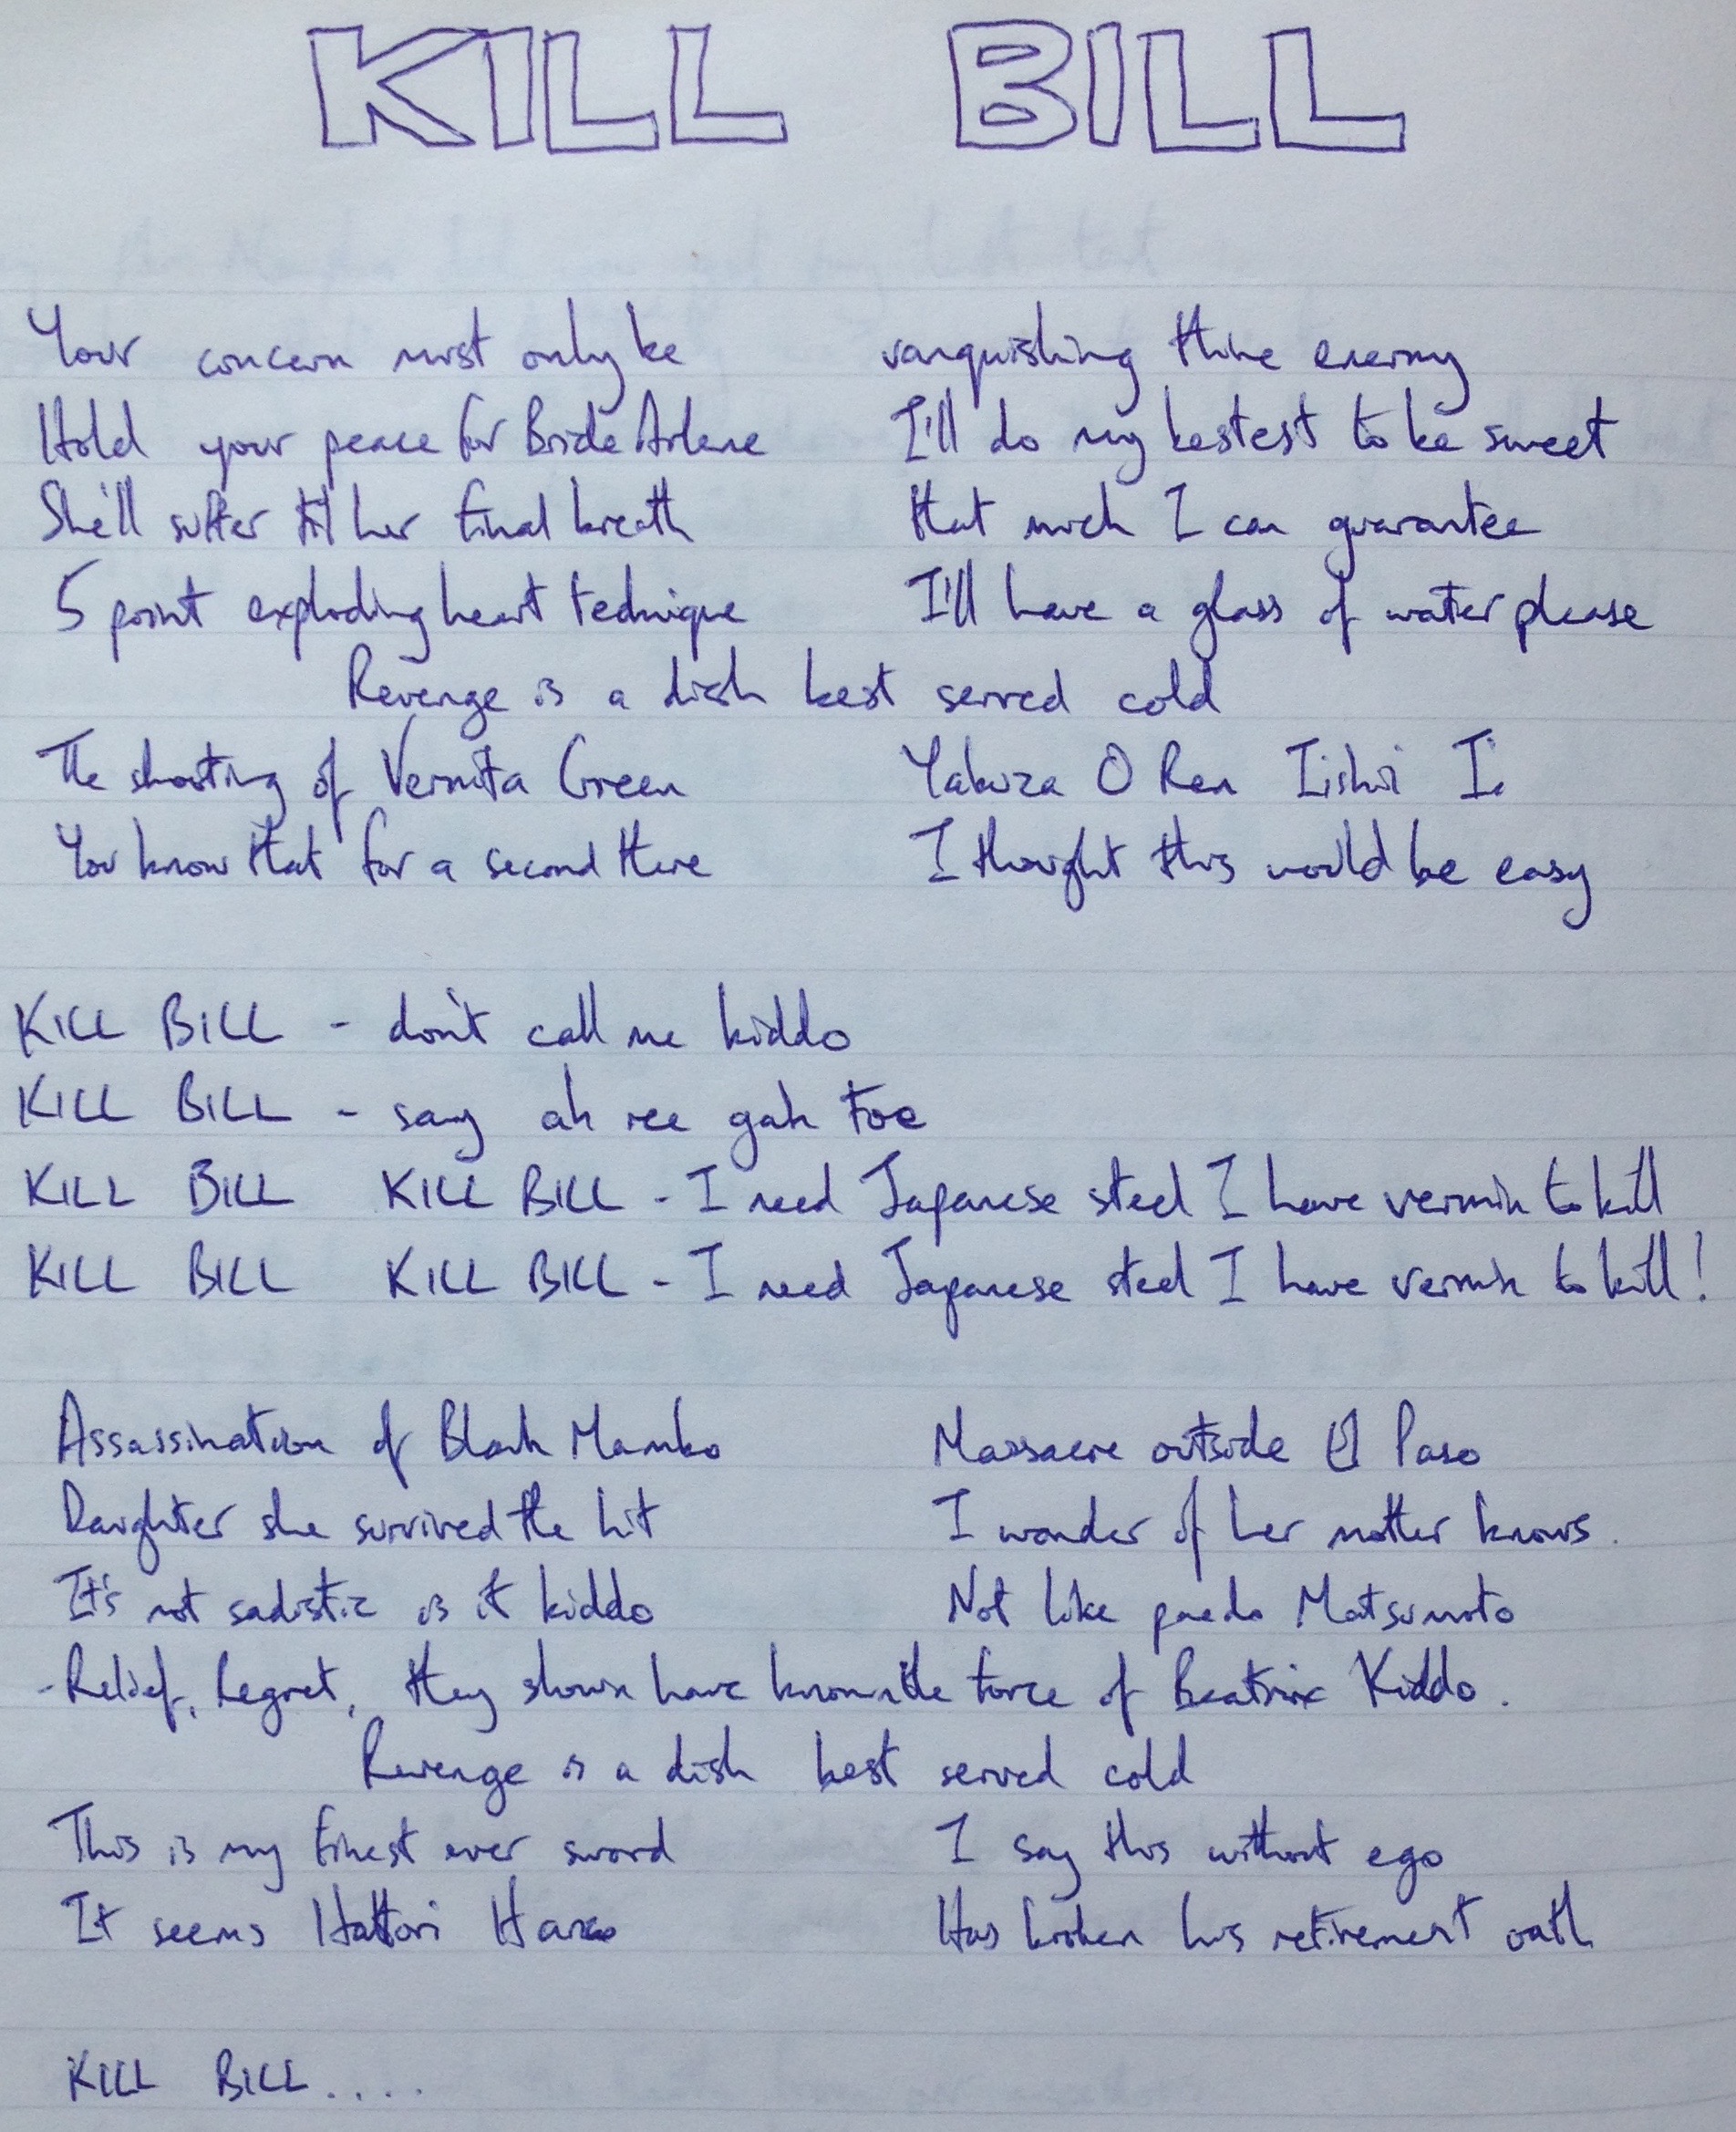 KILL BILL
Your concern must only be vanquishing thine enemy
Hold your peace for Bride Arlene I'll do my bestest to be sweet
She'll suffer til her final breath that much I can guarantee
5 point exploding heart technique I'll have a glass of water please
Revenge is a dish best served cold
The shooting of Vernita Green Yakuza O Ren Iishii I.
You know that for a second there I thought this would be easy
KILL BILL - don't call me kiddo
KILL BILL - say ah ree gah toe
KILL BILL KILL BILL - I need Japanese steel I have vermin to kill
KILL BILL KILL BILL - I need Japanese steel I have vermin to kill!
Assassination of Black Mamba Massacre outside El Paso
Daughter she survived the hit I wonder if her mother knows.
It's not sadistic is it kiddo Not like paedo Matsumoto
- Relief, Regret, they have known the force of Beatrix Kiddo.
Revenge is a dish best served cold
This is my finest ever sword I say this without ego
It seems Hattori Hanzo Has broken his retirement oath
KILL BILL....